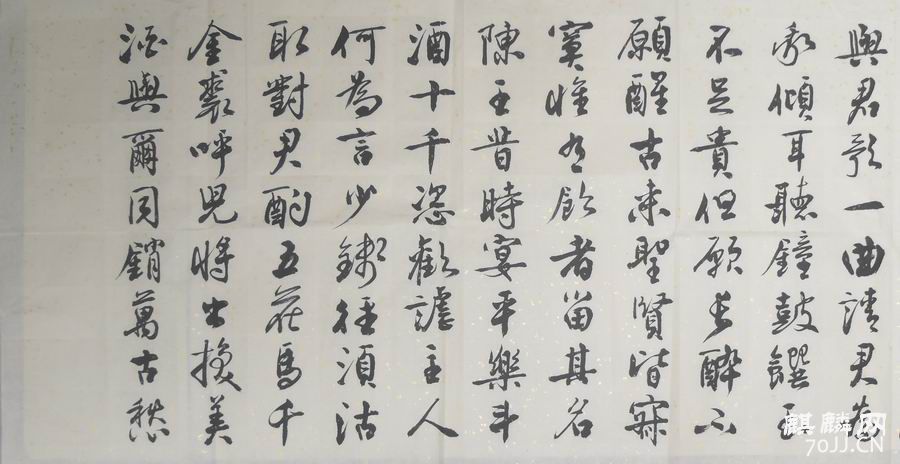 與君歌一曲請君為
我傾耳聽鐘鼓饌玉
不足貴但願長醉不
願醒古來聖賢皆寂
寞惟有飲者留其名
陳王昔時宴平樂斗
酒十千恣歡謔主人
何為言少錢徑須沽
取對君酌五花馬千
金裘呼兒將出換美
酒與爾同銷萬古愁
麒麟网
70JJ.CN